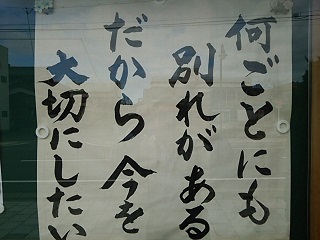 何ごとにも
別れがある
だから今を
大切にしたい